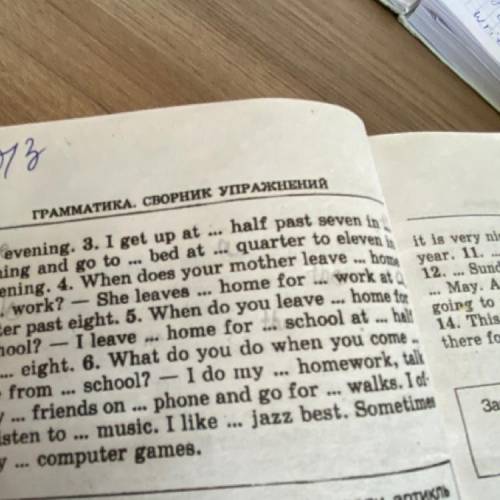 ГРАММАТИКА. СБОРНИК УПРАЖНЕНИЙ
evening. 3. I get up at ... half past seven in
and go to ... bed at ... quarter to eleven in
4. When does your mother leave ... home
work? — She leaves ... home for ... work at
past eight. 5. When do you leave ... home for
I leave ... home for ... school at ... half
... eight. 6. What do you do when you come ..
from ... school? — I do my ... homework, talk
... friends on ... phone and go for ... walks. I
to ... music. I like ... jazz best. Sometimes
... computer games.
it is very
year. 11. ...
12. ...
... May. A
going to
14. This
there